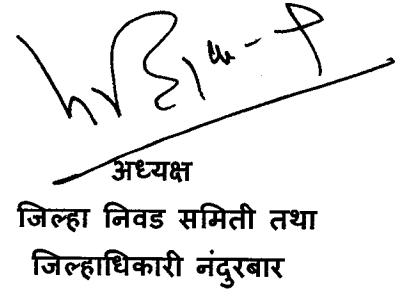 अध्यक्ष
जिल्हा निवड समिती तथा
जिल्हाधिकारी नंदुरबार